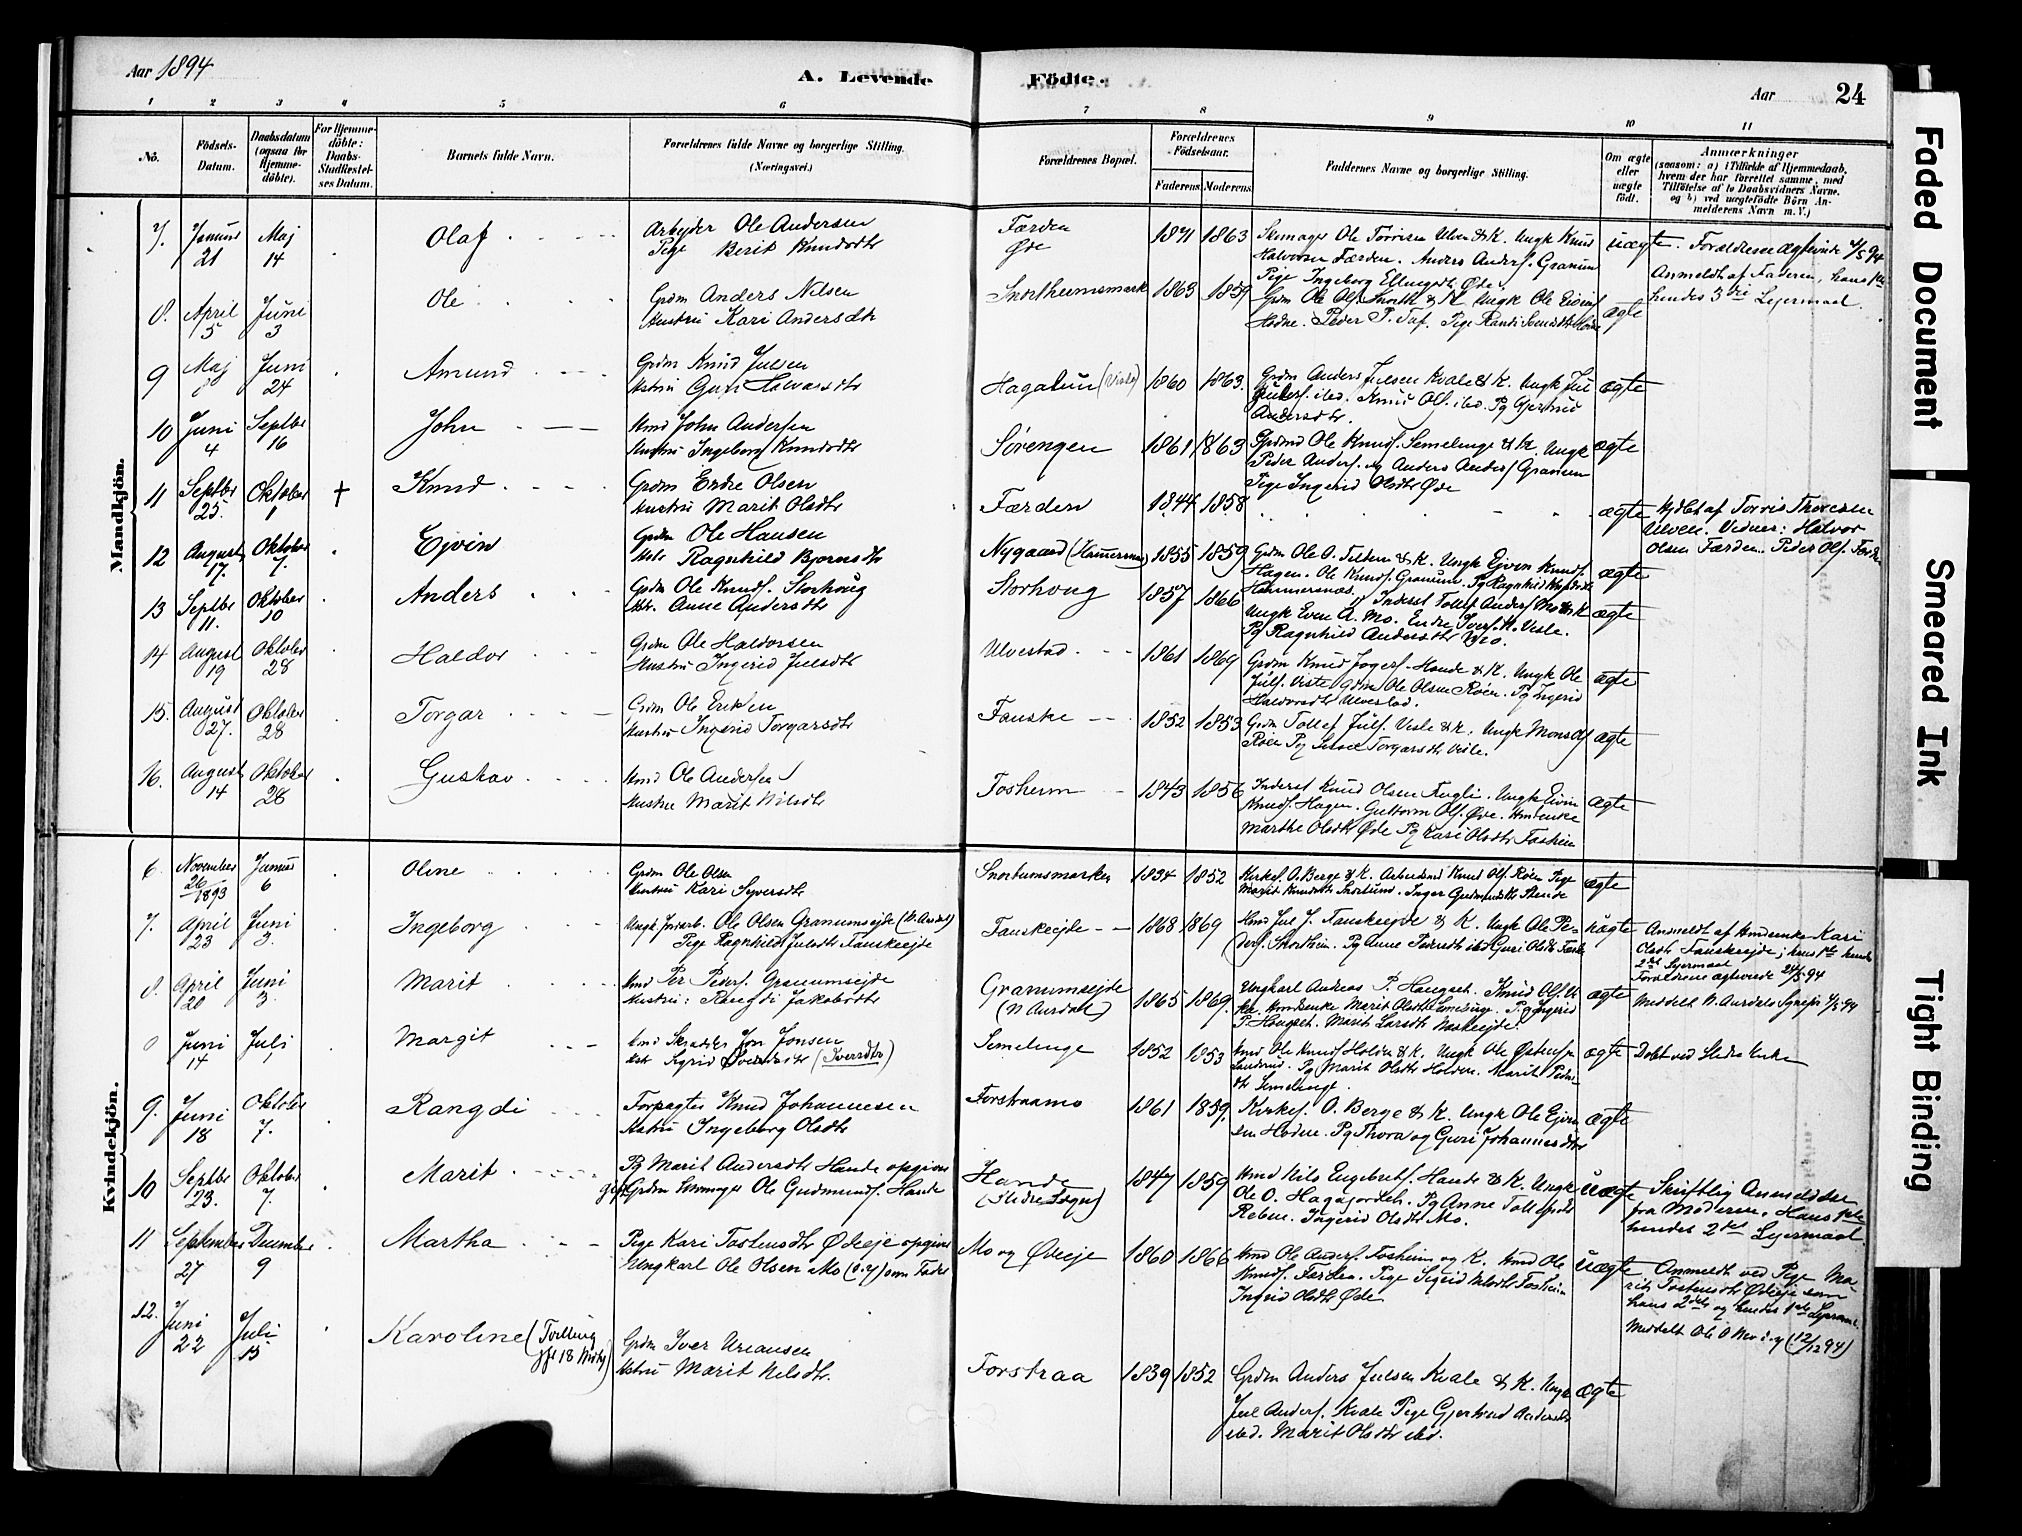 Aar 1894
A. Levende
Födte.
Aar
24
1 2 3 4 5 6 7 8 9 10 11
No.
Födsels-
Datum.
Daabsdatum
(ogsaa for
Hjemme-
döbte).
For Hjemme-
döbte:
Daabs-
Stadfæstel-
ses Datum.
Barnets fulde Navn.
Forældrenes fulde Navne og borgerlige Stilling.
(Næringsvei.)
Forældrenes Bopæl.
Forældrenes
Födselsaar.
Faderens.
Moderens.
Faddernes Navne og borgerlige Stilling.
Om ægte
eller
uægte
födt.
Anmærkninger
(saasom: a) i Tilfælde af Hjemmedaab,
hvem der har forrettet samme, med
Tilföielse af to Daabsvidners Navne,
og b) ved uægtefödte Börn An-
melderens Navn m. V.)
Mandkjön.
7. Januar 21 Maj 14 Olaf
Arbejder Ole Andersen
Pige Berit Knudsdtr
Færden
Øde
1871 1863
Skomager Ole Torrisen Ulven & K. Ungk Knud
Halvorsen Færden. Anders Anders. Granum
Pige Ingeborg Ellingsdtr Øde
uægte. Forældrene ægteviede 4/5 94
Anmeldt af Faderen, hans
hendes 3die Lejermaal
8. April 5 Juni 3 Ole
Grdm Anders Nilsen
Hustru Kari Andersdtr
Snortheimsmark 1863 1859
Grdm Ole Ols. & K Ungk Ole Eivind
Hodne. Peder P. Pige Randi
ægte
9 Maj 8 Juni 24 Amund
Grdm Knud Julsen
Hstru Guri Halvorsdtr
Hagalun (Viste) 1860 1863.
Grdm Anders Julsen Kvale & K. Ungk Jul
Anders. ibd. Knud Ols. ibd. Pg Gjertrud
Andersdtr.
ægte
10 Juni 4 Septbr 16 John
Hmd John Andersen
Hustru Ingeborg Knudsdtr
Sørengen 1861 1863
Grdmd Ole Knuds. Semelenge & K. Ungk
Peder Anders. og Anders Anders Granum
Pige Ingerid Olsdtr Øde
ægte
11 Septbr 25. Oktober 1 † Knud
Grdm Endre Olsen
Hustru Marit Olsdtr
Færden 1844 1858
ægte Hjdbt af Torris Thoresen
Ulven. Vidner: Halvor
Olsen Færden. Peder Ols. Færden
12 August 17. Oktober 7. Ejvin
Grdm Ole Hansen
Hstr Ragnhild Bjørnsdtr
Nygaard (Hamersnæs) 1855 1859
Grdm Ole O. & K. Ungk Ejven Knuds.
Hagen. Ole Knuds. Granum. Pg Ragnhild
Hammersnæs.
ægte
13 Septbr 11. Oktober 10 Anders
Grdm Ole Knuds. Storhoug
Hstr. Anne Andersdtr
Storhoug 1857 1866
Inderst Tollef Anders Mo & K
Ungk Even A. Mo. Endre Viste.
Pg Ragnhild Andersdtr Mo.
ægte
14 August 19 Oktober 28 Haldor
Grdm Ole Haldorsen
Hustru Ingerid Julsdtr
Ulvestad 1861 1869
Grdm Knud Hande & K. Ungk Ole
Juls. Viste Grdm Ole Olsen Røen. Pg Ingerid
Haldorsdtr Ulvestad.
ægte
15. August 27. Oktober 28 Torgar
Grdm Ole Eriksen
Hustru Ingerid Torgarsdtr
Fauske 1852 1853
Grdm Tollef Juls. Viste & K. Ungk Mons Ols
Røen Pg Torgarsdtr Viste.
ægte
16. August 14 Oktober 28 Gustav
Hmd Ole Andersen
Hustru Marit Nilsdtr
Fosheim 1843 1856
Inderst Knud Olsen Fugli. Ungk Eivin
Knuds. Hagen. Guttorm Ols. Øde. Hmdenke
Marthe Olsdtr Øde Pg Kari Olsdtr Fosheim
ægte
Kvindekjön.
6. November 26/1893 Januar 6 Oline
Grdm Ole Olsen
Hustru Kari Syversdtr
Snortumsmarken 1834 1852
Kirkes. O. Berge & K. Arbeidsmd Knud Ols. Røen Pige
Marit Knudsdtr Snortum. Inger Gudmundsdtr Hande
ægte
7. April 23 Juni 3. Ingeborg
Ungk Jordarb. Ole Olsen Granumsejde (N. Aurdal)
Pige Ragnhild Julsdtr Fauskeejde
Fauskeejde 1868 1869
Hmd Jul J. Fauskeejde & K. Ungk Ole Pe-
ders. Storheim. Pg Anne Pedersdtr ibd Guri Olsdtr
uægte Anmeldt af Hmdenke Kari
Olsdtr Fauskeejde; hans 1ste hendes
2det Lejermaal
Forældrene ægteviede 24/5 94
8. April 20 Juni 3. Marit
Hmd Per Peders. Granumsejde
Hustru: Rangdi Jakobsdtr
Granumsejde
(N Aurdal)
1865 1869.
Ungkarl Andreas P. Haugset. Knud Ols.
Hmdenke Marit Olsdtr Semelenge. Pg Ingerid
P. Haugset. Marit Larsdtr
ægte Meddelt N. Aurdals Sognep
Juni 14 Juli 1 Margit
Hmd Skrædder Jon Jonsen
Hstr Sigrid (Iversdtr)
Semelenge 1852 1853
Hmd Ole Knuds Holden & K. Ungk Ole Østens.
Sandrud. Pg Marit Olsdtr Holden. Marit Peders-
dtr Semelenge.
ægte Døbt ved Slidre Kirke
9. Juni 18 Oktober 7. Rangdi
Forpagter Knud Johannesen
Hstru Ingeborg Olsdtr
Forstraamo 1861 1859.
Kirkes. O. Berge & K. Ungk Ole Ejvin
sen Hodne. Pg Thora og Guri Johannesdtr
ægte
10 Septbr 23. Oktober 7. Marit
Pg Marit Andersdtr Hande opgiver
gift Grdm Skomager Ole Gudmunds. Hande
Hande
(Slidre Sogn)
1847 1859
Hmd Nils Engebrets. Hande & K. Ungk
Ole O. Pg Anne Tollefsdtr
Reben. Ingerid Olsdtr Mo.
uægte Skriftlig Anmeldelse
fra Moderen. Hans 1ste
hendes 2det Lejermaal
11 September 27 December 9 Martha
Pige Kari Tostensdtr Ødeeje opgiver
Ungkarl Ole Olsen Mo (ö.y) som Fader
Mo og Ødeeje 1860 1866
Hmd Ole Anders. Fosheim og K. Hmd Ole
Knuds. Færden. Pige Sigrid Nilsdtr Fosheim
Ingrid Olsdtr Øde
uægte Anmeldt ved Pige Ma-
rit Tostensdtr Ødeeje som
hans 2det og hendes 1ste Lejerm.
Meddelt Ole O Mo ö. y (12/12 94)
12. Juni 22 Juli 15 Karoline (Tvilling
jfr 18 Mdkj)
Grdm Iver Uriansen
Hstru Marit Nilsdtr.
Forstraa 1839 1852
Grdm Anders Julsen Kvale & K. Ungk
Jul Anders. Kvale Pige Gjertrud Andersdtr
ibd. Marit Olsdtr ibd.
ægte
Faded Document
Smeared Ink
Tight Binding